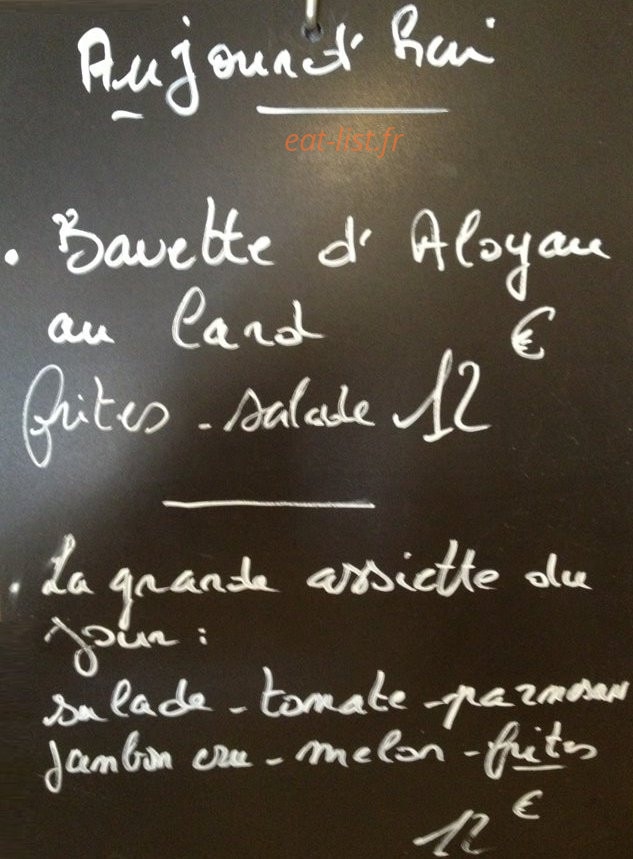 Aujourd'hui
eat-list.fr
• Bavette d'Aloyau
au lard €
frites - salade 12
• La grande assiette du
jour :
salade - tomate - parmesan
jambon cru - melon - frites
12 €